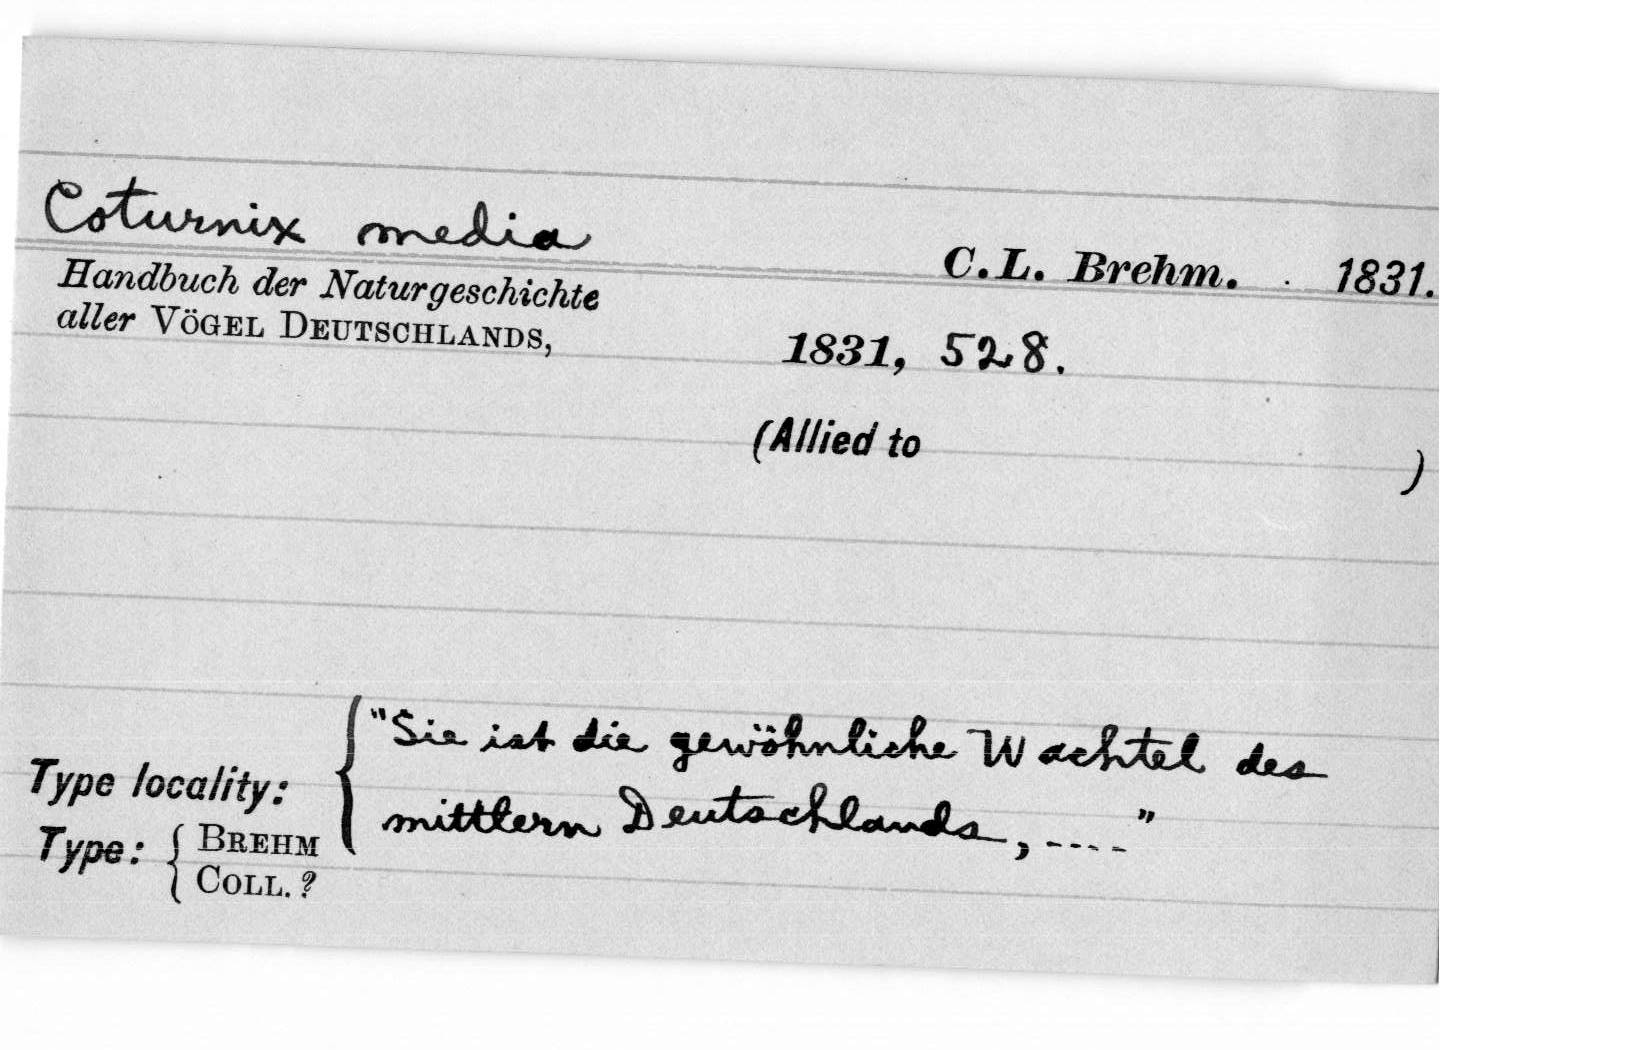 Coturnix media
C.L. Brehm. . 1831.
Handbuch der Naturgeschichte
aller VÖGEL DEUTSCHLANDS,
1831, 528.
(Allied to )
"Sie ist die gewöhnliche Wachtel des
Type locality:
mittlern Deutschlands, ...."
Type: { BREHM
COLL. ?